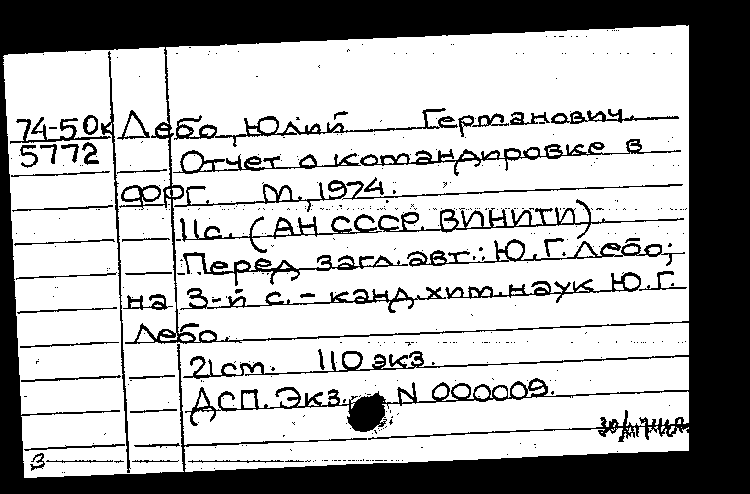 74-50к Лебо, Юлий Германович.
5772 Отчет о командировке в
ФРГ. М., 1974.
11с. (АН СССР. ВИНИТИ).
Перед загл. авт.: Ю.Г. Лебо;
на 3-й с. - канд. хим. наук Ю.Г.
Лебо.
21 см. 110 экз.
ДСП. Экз. N 000009.
3